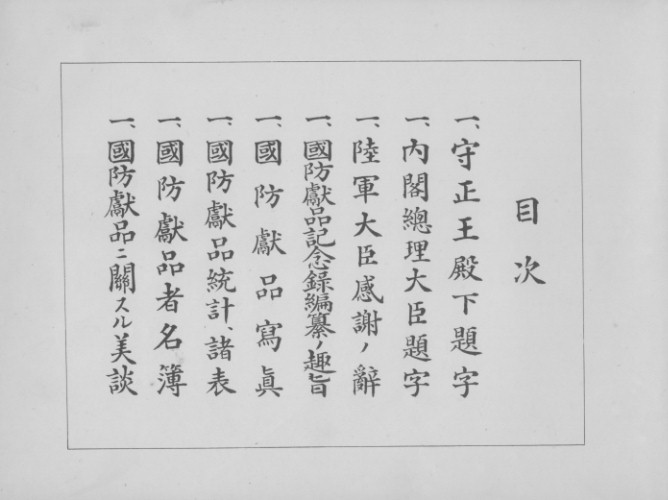 目次
一、守正王殿下題字
一、内閣總理大臣題字
一、陸軍大臣感謝ノ辭
一、國防獻品記念錄編纂ノ趣旨
一、國防獻品寫眞
一、國防獻品統計、諸表
一、國防獻品者名簿
一、國防獻品ニ關スル美談